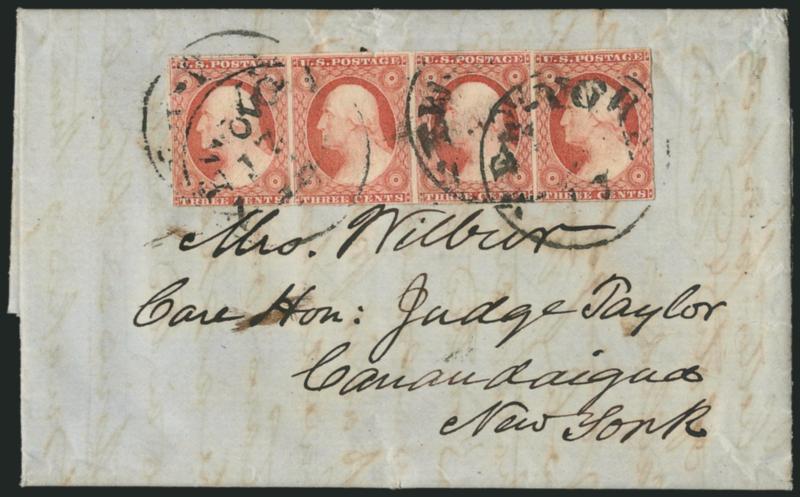 U.S. POSTAGE U.S. POSTAGE U.S. POSTAGE U.S. POSTAGE
THREE CENTS THREE CENTS THREE CENTS THREE CENTS
Mrs. Wilbur
Care Hon: Judge Taylor
Canandaigua
New York